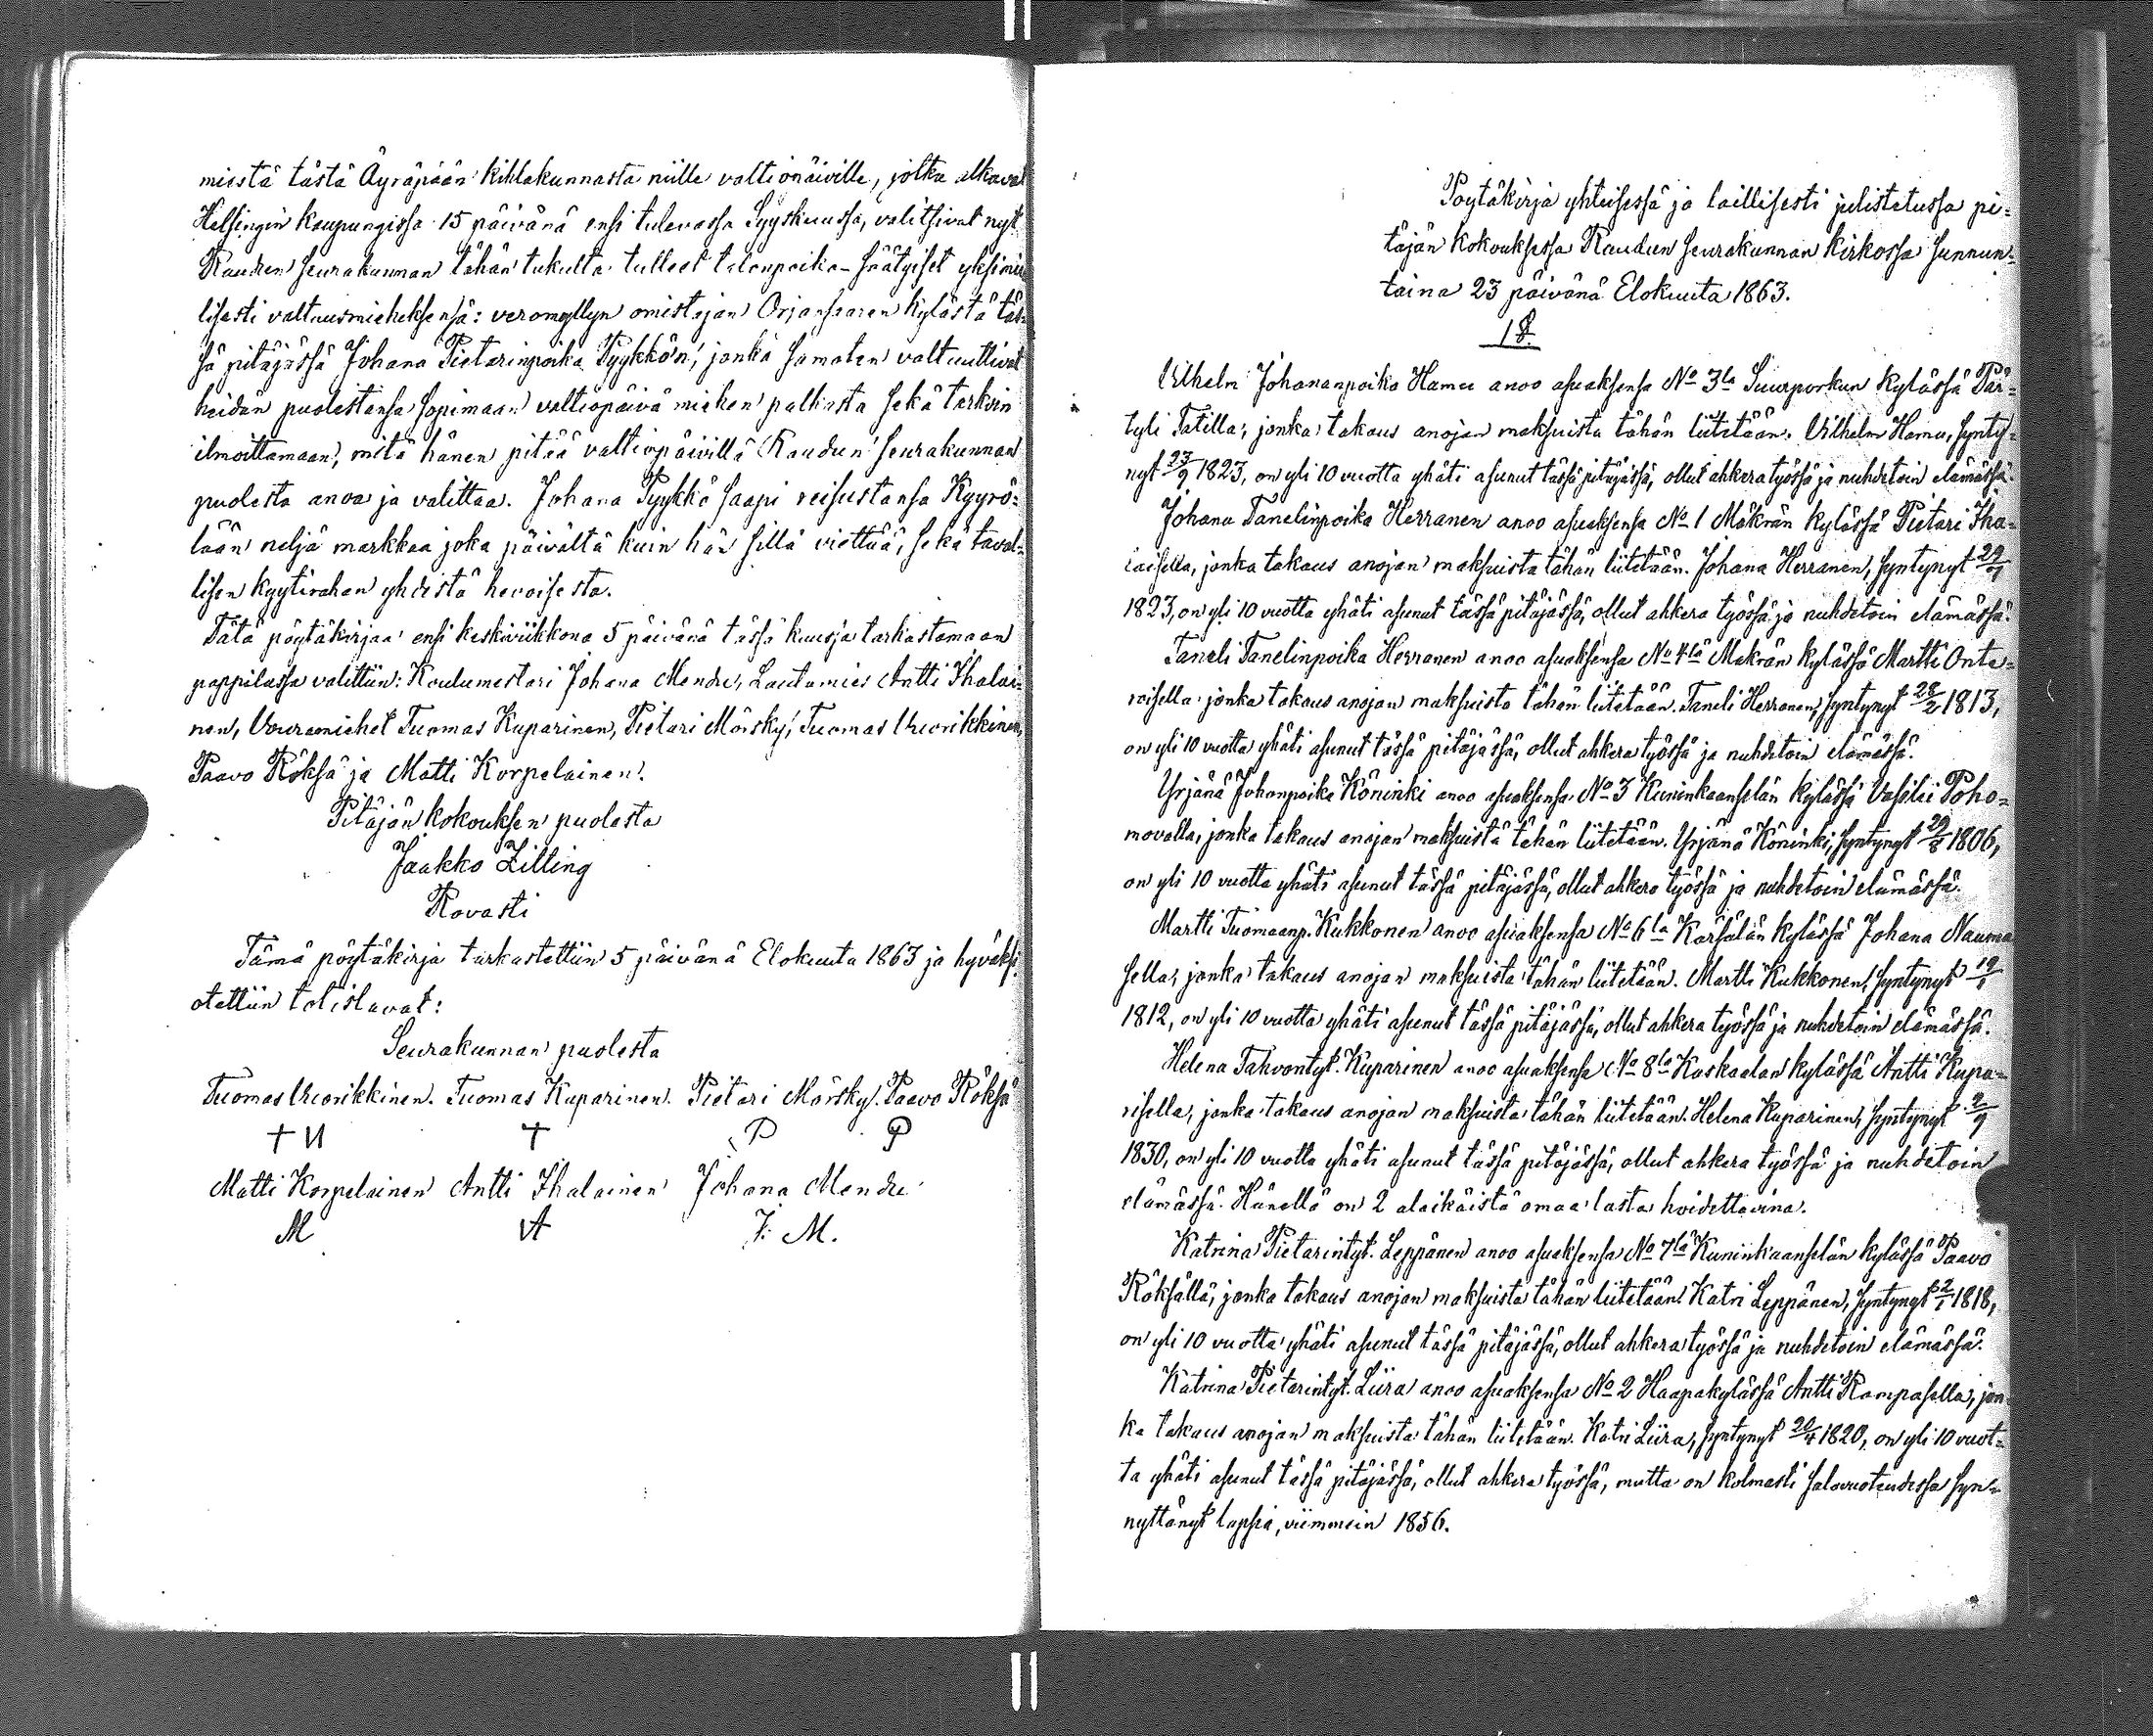 miestä tästä Äyräpään kihlakunnasta niille valtiopäiville, jotka alkavat
Helsingin kaupungissa 15 päivänä ensi tulevassa Syyskuussa, valitsivat nyt
Raudun seurakunnan tähän tukulta tulleet talonpoika-säätyiset yksimie
lisesti valtuusmieheksensä: veromyllyn omistajan Orjansaaren kylästä täs
sä pitäjässä Johana Pietarinpoika Pyykkön, jonka samaten valtuuttivat
heidän puolestansa sopimaan valtiopäivä miehen palkasta sekä tarkoin
ilmoittamaan, mitä hänen pitää valtiopäivillä Raudun seurakunnan
puolesta anoa ja valittaa. Johana Pyykkö saapi reisustansa Kyyrö=
lään neljä markkaa joka päivältä kuin hän sillä viettää, sekä taval=
lisen kyytirahan yhdestä hevoisesta.
Tätä pöytäkirjaa ensi keskiviikkona 5 päivänä tässä kuussa tarkastamaan
pappilassa valittiin: Koulumestari Johana Mendu, Lautamies Antti Ihalai=
nen, Vouramiehet Tuomas Kuparinen, Pietari Mörsky, Tuomas Vuorikkinen,
Paavo Röksä ja Matti Korpelainen.
Pitäjän kokouksen puolesta
Jaakko Zilling
Rovasti
Tämä pöytäkirja tarkastettiin 5 päivänä Elokuuta 1863 ja hyväksi
otettiin totistavat:
Seurakunnan puolesta
Tuomas Vuorikkinen. Tuomas Kuparinen. Pietari Mörsky. Paavo Röksä
Matti Korpelainen Antti Ihalainen Johana Mendu
M A J. M.
Pöytäkirja yhteisessä ja laillisesti julistetussa pi=
täjän kokouksessa Raudun seurakunnan kirkossa sunnun=
taina 23 päivänä Elokuuta 1863.
1 §.
Vilhelm Johananpoika Hamu anoo asuaksensa No 3la Suurporkun kylässä Pär=
tyli Tatilla, jonka takaus anojan maksuista tähän liitetään. Vilhelm Hamu, synty=
nyt 23/9 1823, on yli 10 vuotta yhäti asunut tässä pitäjässä, ollut ahkera työssä ja nuhdetoin elämässä.
Johana Tanelinpoika Herranen anoo asuaksensa No 1 Mäkrän kylässä Pietari Iha=
laisella, jonka takaus anojan maksuista tähän liitetään. Johana Herranen, syntynyt
1823, on yli 10 vuotta yhäti asunut tässä pitäjässä, ollut ahkera työssä ja nuhdetoin elämässä.
Taneli Tanelinpoika Herranen anoo asuaksensa No 4lä Mäkrän kylässä Martti Onte=
roisella jonka takaus anojan maksuista tähän liitetään. Taneli Herranen, syntynyt 28/2 1813,
on yli 10 vuotta yhäti asunut tässä pitäjässä, ollut ahkera työssä ja nuhdetoin elämässä.
Yrjänä Johanpoika Köninki anoo asuaksensa No 3 Kuninkaanselän kylässä Vasilii Poho=
movalla, jonka takaus anojan maksuista tähän liitetään. Yrjänä Köninki, syntynyt 29/8 1806,
on yli 10 vuotta yhäti asunut tässä pitäjässä, ollut ahkera työssä ja nuhdetoin elämässä.
Martti Tuomaanp. Kukkonen anoo asuaksensa No 6la Karsalan kylässä Johana Nauma
sella, jonka takaus anojan maksuista tähän liitetään. Martti Kukkonen, syntynyt 19/1
1812, on yli 10 vuotta yhäti asunut tässä pitäjässä, ollut ahkera työssä ja nuhdetoin elämässä.
Helena Tahvontyt. Kuparinen anoo asuaksensa No 8la Kaskaalan kylässä Antti Kupa=
risella, jonka takaus anojan maksuista tähän liitetään. Helena Kuparinen, syntynyt 2/9
1830, on yli 10 vuotta yhäti asunut tässä pitäjässä, ollut ahkera työssä ja nuhdetoin
elämässä. Hänellä on 2 alaikäistä omaa lasta hoidettavina.
Katrina Pietarintyt. Leppänen anoo asuaksensa No 7lä Kuninkaanselän kylässä Paavo
Röksällä, jonka takaus anojan maksuista tähän liitetään. Katri Leppänen, syntynyt 2/1 1818,
on yli 10 vuotta yhäti asunut tässä pitäjässä, ollut ahkera työssä ja nuhdetoin elämässä.
Katrina Pietarintyt. Liira anoo asuaksensa No 2 Haapakylässä Antti Rampasella, jon
ka takaus anojan maksuista tähän liitetään. Katri Liira, syntynyt 20/4 1820, on yli 10 vuot=
ta yhäti asunut tässä pitäjässä, ollut ahkera työssä, mutta on kolmasti salavuoteudessa syn=
nyttänyt lapsia, viimmein 1856.